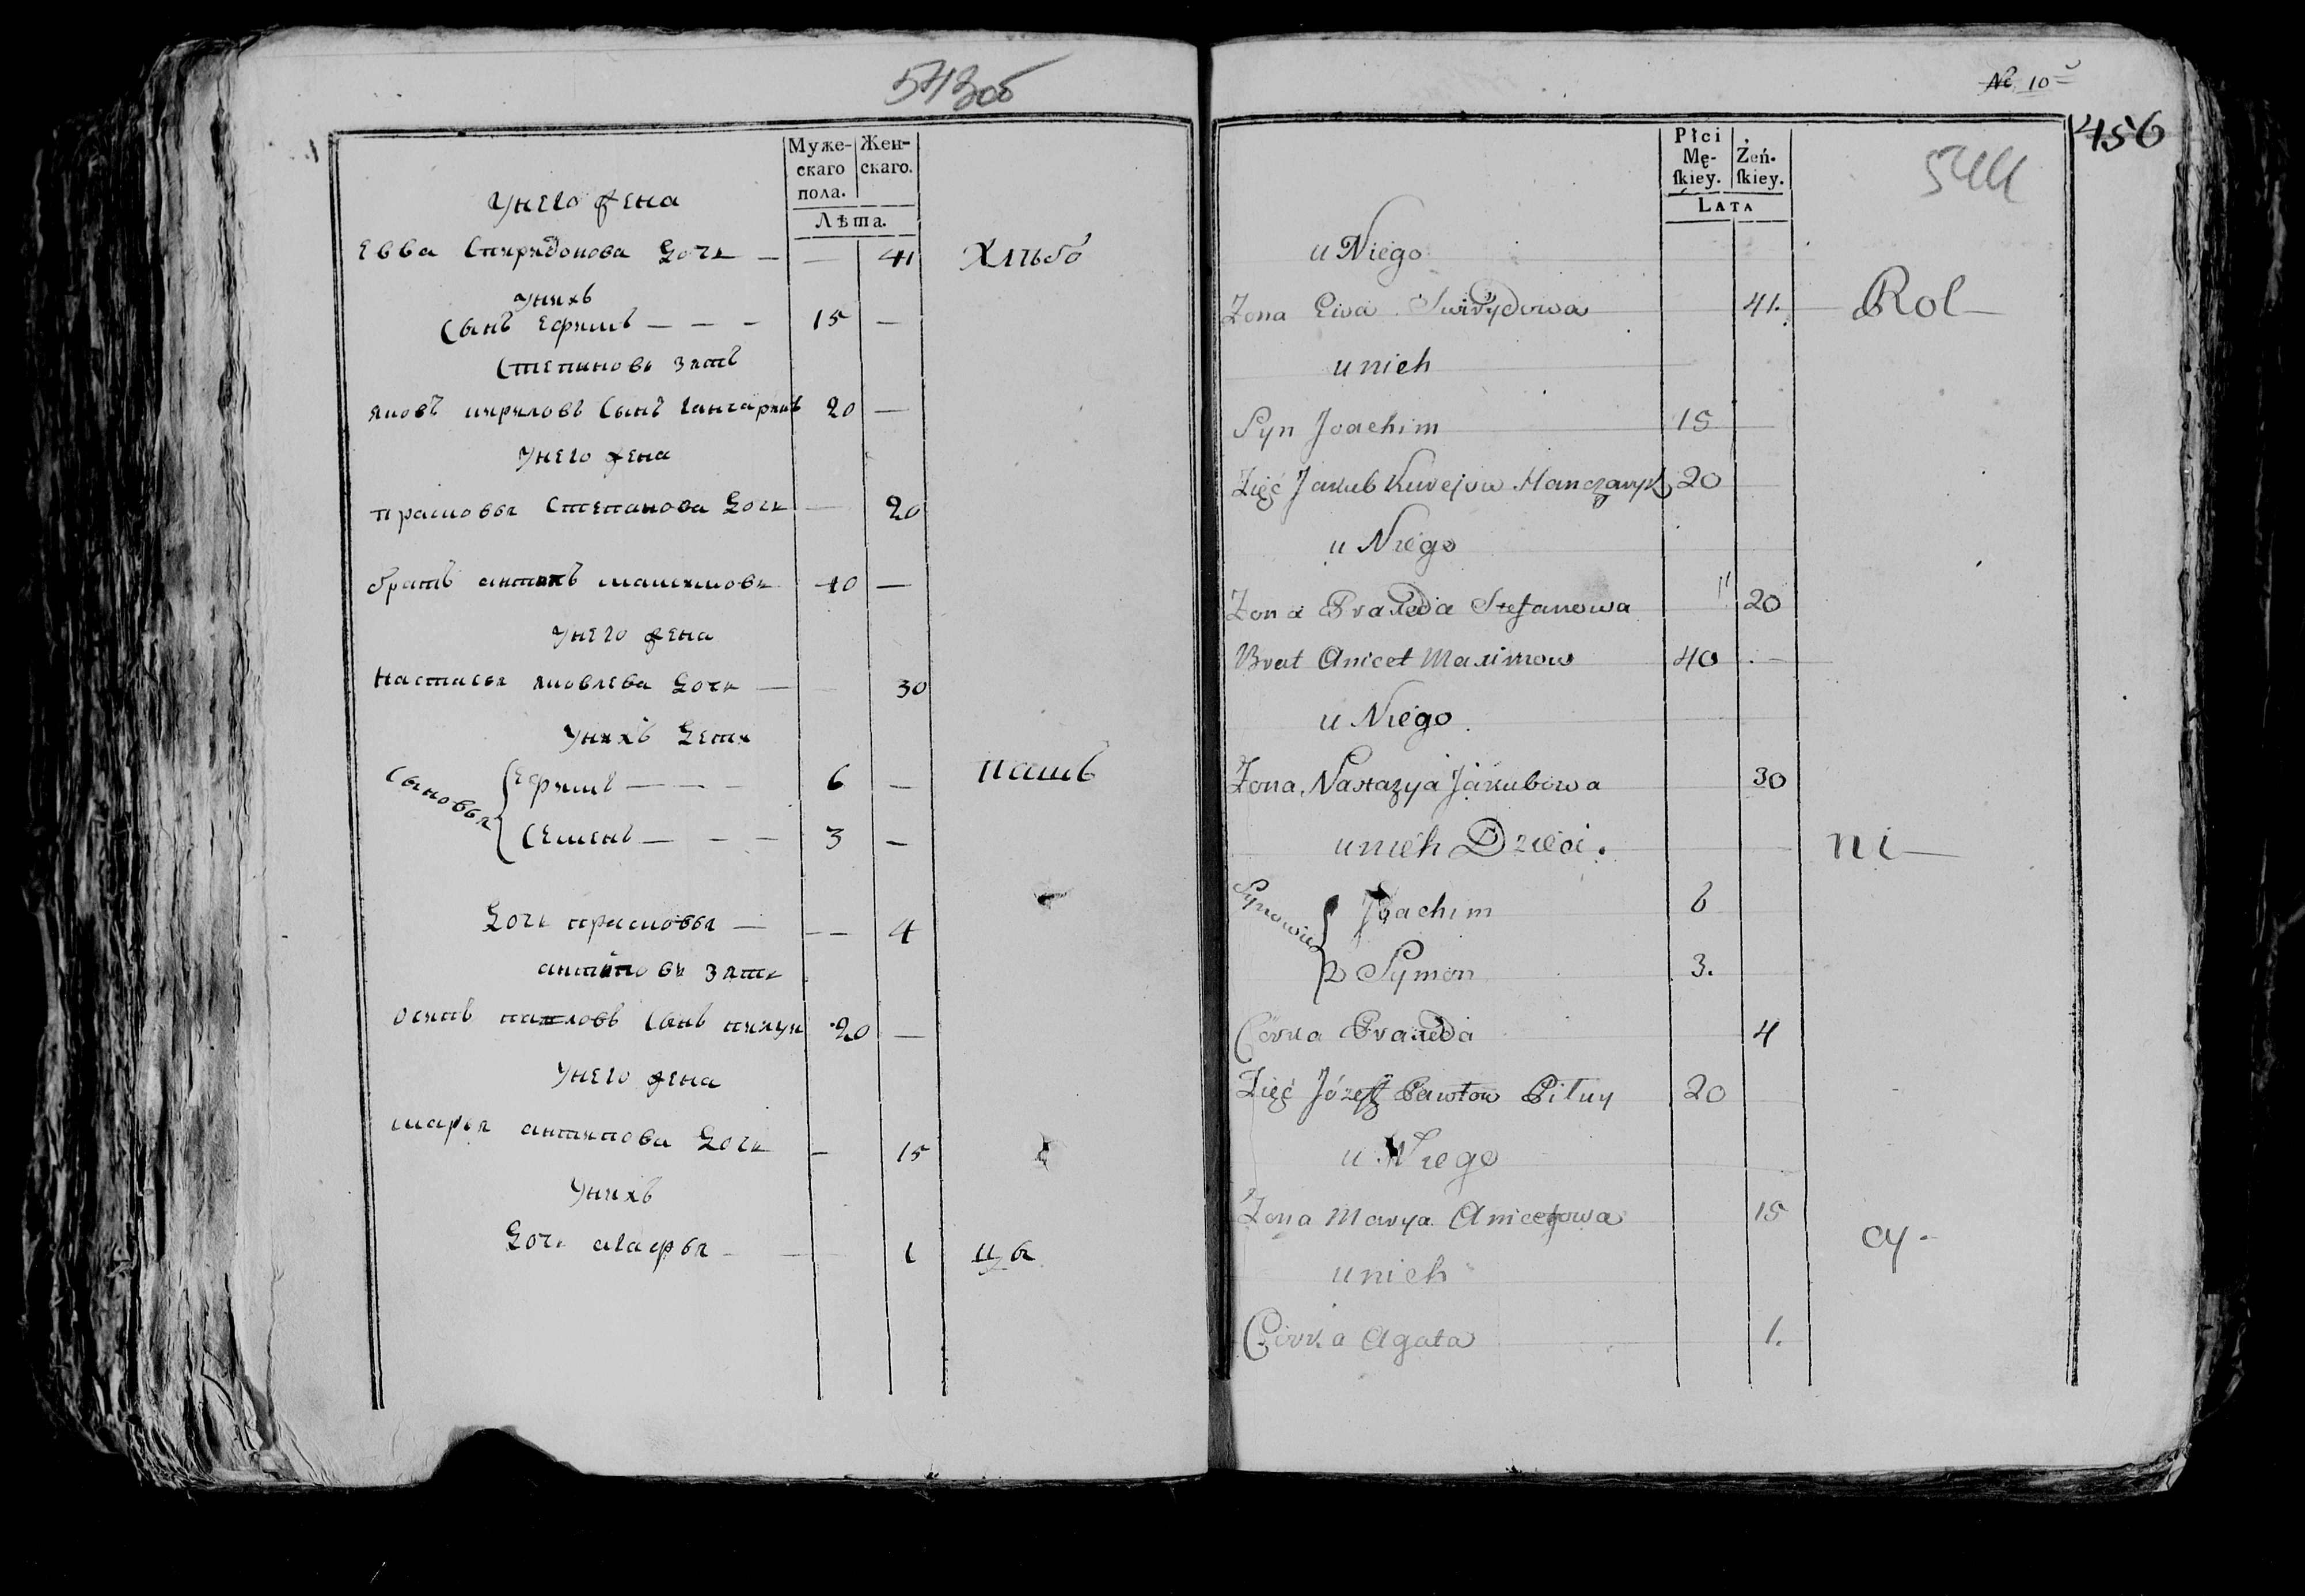 543об
Муже-
скаго
пола.
Жен-
скаго.
Лѣта.
Унего жена
Евва Спиридонова дочь — — 41 Хлѣбо
Унихъ
Сынъ Ефимъ — — — 15 —
Степановъ зять
Яковъ Кириловъ Сынъ Ганчарикъ 20 —
Унего жена
Прасковья Степанова дочь — 20
братъ антипъ Максимовъ 40 —
Унего жена
Настасья Яковлева дочь — — 30
Унихъ дети
Сыновья Ефимъ — — — 6 — пашъ
Семенъ — — — 3 —
дочь прасковья — — — 4
антиповъ зять
осипъ павловъ Сынъ 20 —
Унего жена
марья антипова дочь — 15
Унихъ
дочь агафья — — 1 цы
№ 10
456
544
Płci
Mę-
skiey.
Żeń-
skiey.
LATA
u Niego
Żona Ewa Swirydowa 41. Rol—
u nich
Syn Joachim 15
Zięć Jakub Hanczaryk 20
u Niego
Żona Praxeda Stefanowa " 20
Brat Anicet Maximow 40 . —
u Niego.
Żona Nastazya Jakubowa 30
u nich Dzieci. ni—
Synowie Joachim 6
2 Symon 3.
Córka Praxeda 4
Zięć Józef Pawłow Piłuy 20
u Niego
Żona Marya Anicetowa 15
cy.
u nich
Córka Agata 1.